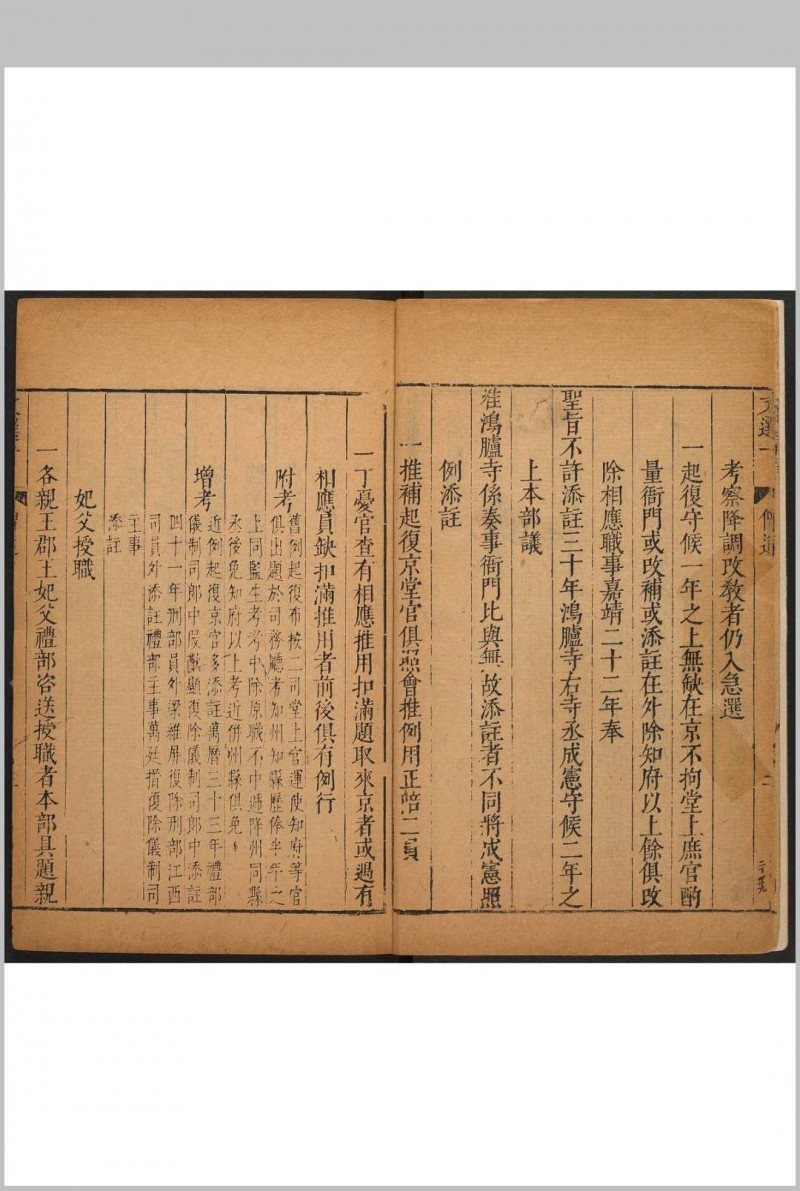 考察降調改教者仍入急選
一起復守候一年之上無缺在京不拘堂上庶官酌
量衙門或改補或添註在外除知府以上餘俱改
除相應職事嘉靖二十二年奉
聖旨不許添註三十年鴻臚寺右寺丞成憲守候二年之
上本部議
准鴻臚寺係奏事衙門比與無故添註者不同將成憲照
例添註
一推補起復京堂官俱照會推例用正陪二員
一丁憂官查有相應推用扣滿題取來京者或遇有
相應員缺扣滿推用者前後俱有例行
附考
舊例起復布按二司堂上官運使知府等官
俱出題於司務廳考知州知縣歷俸半年之
上同監生考考中除原職不中遞降州同縣
丞後免知府以上考近併州縣俱免
增考
近例起復京官多添註萬曆三十三年禮部
儀制司郎中段猷顯復除儀制司郎中添註
四十一年刑部員外梁維屏復除刑部江西
司員外添註禮部主事萬廷揩復除儀制司
主事
添註
妃父授職
一各親王郡王妃父禮部咨送授職者本部具題親